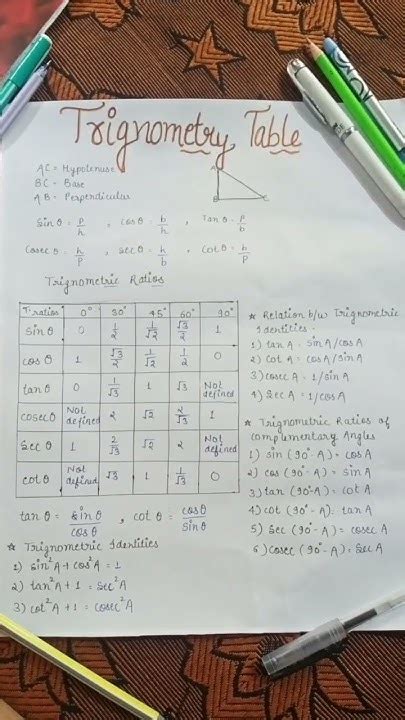 Trignometry Table
AC = Hypotenuse
BC = Base
AB = Perpendicular
A
B
C
Sin θ = p/h , Cos θ = b/h , Tan θ = p/b
Cosec θ = h/p , Sec θ = h/b , Cot θ = b/p
Trignometric Ratios
T.ratios 0° 30° 45° 60° 90°
Sin θ 0 1/2 1/√2 √3/2 1
cos θ 1 √3/2 1/√2 1/2 0
tan θ 0 1/√3 1 √3 Not defined
cosec θ Not defined 2 √2 2/√3 1
Sec θ 1 2/√3 √2 2 Not defined
cot θ Not defined √3 1 1/√3 0
tan θ = sin θ/cos θ , cot θ = cos θ/sin θ
★ Trignometric Identities
1) sin²A + cos²A = 1
2) tan²A + 1 = sec²A
3) cot²A + 1 = cosec²A
★ Relation b/w Trignometric
Identities -
1) tan A = sin A/cos A
2) Cot A = cos A/sin A
3) cosec A = 1/sin A
4) Sec A = 1/cos A
★ Trignometric Ratios of
Complementary Angles
1) sin (90° - A) = cos A
2) cos (90° - A) = sin A
3) tan (90° - A) = cot A
4) cot (90° - A) = tan A
5) Sec (90° - A) = cosec A
6) Cosec (90° - A) = Sec A